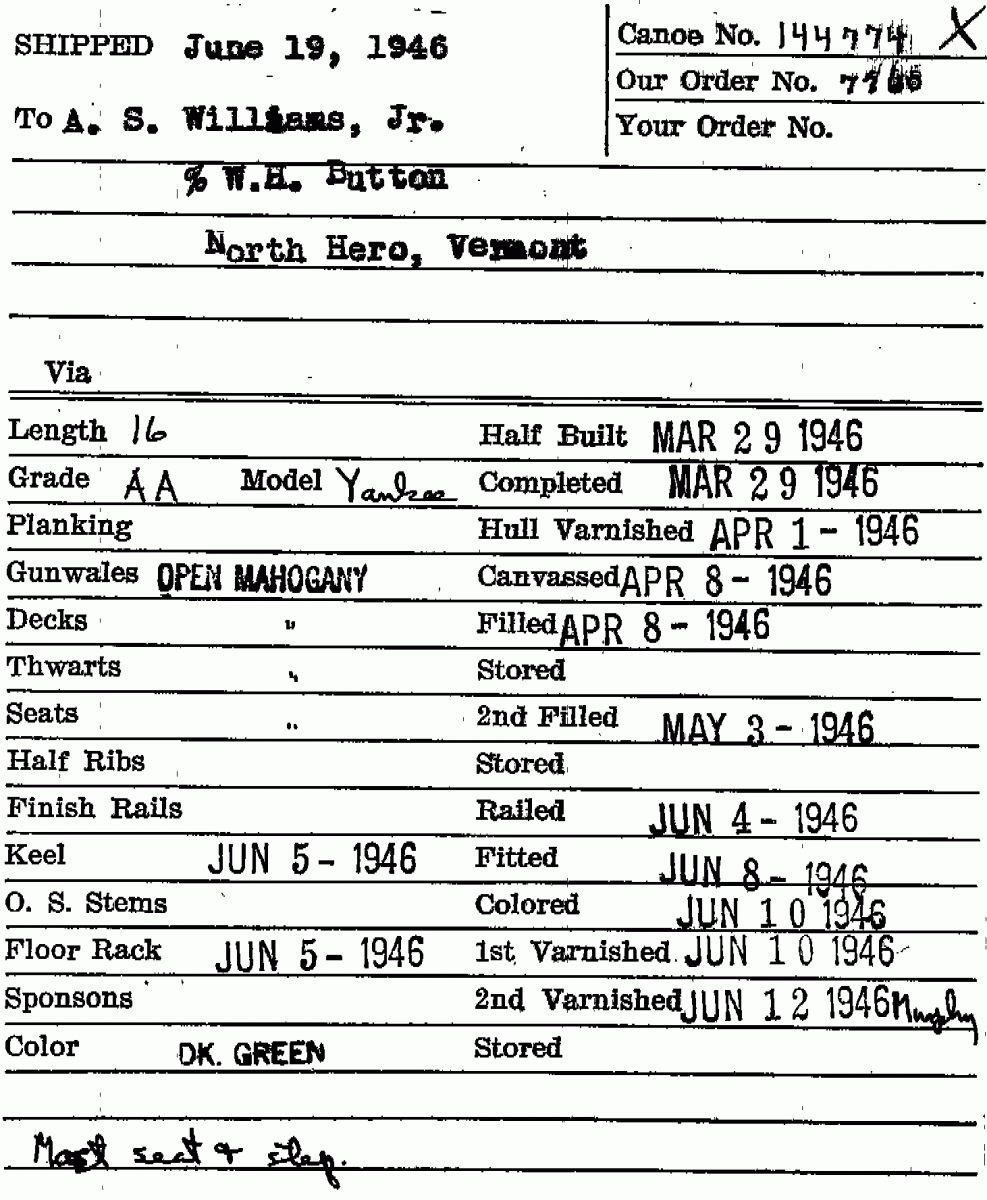 SHIPPED June 19, 1946
Canoe No. 144774 X
Our Order No.
To A. S. Williams, Jr.
Your Order No.
% W.H. Button
North Hero, Vermont
Via
Length 16 Half Built MAR 29 1946
Grade AA Model Yankee Completed MAR 29 1946
Planking Hull Varnished APR 1 - 1946
Gunwales OPEN MAHOGANY Canvassed APR 8 - 1946
Decks " Filled APR 8 - 1946
Thwarts " Stored
Seats " 2nd Filled MAY 3 - 1946
Half Ribs Stored
Finish Rails Railed JUN 4 - 1946
Keel JUN 5 - 1946 Fitted JUN 8 - 1946
O. S. Stems Colored JUN 10 1946
Floor Rack JUN 5 - 1946 1st Varnished JUN 10 1946
Sponsons 2nd Varnished JUN 12 1946 Murphy
Color DK. GREEN Stored
Mast seat & step.